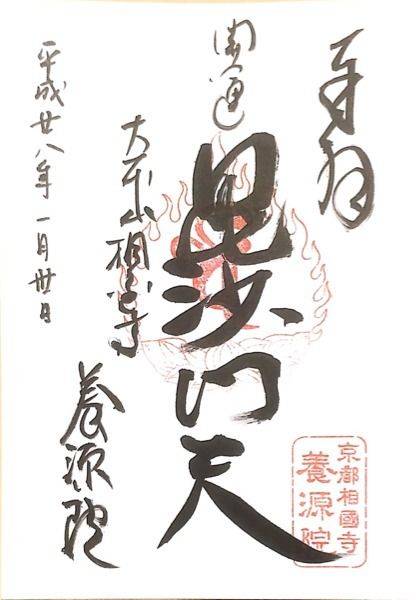 奉拝
開運
毘沙門天
大本山相国寺
養源院
平成廿八年一月卅日
京都相國寺
養源院